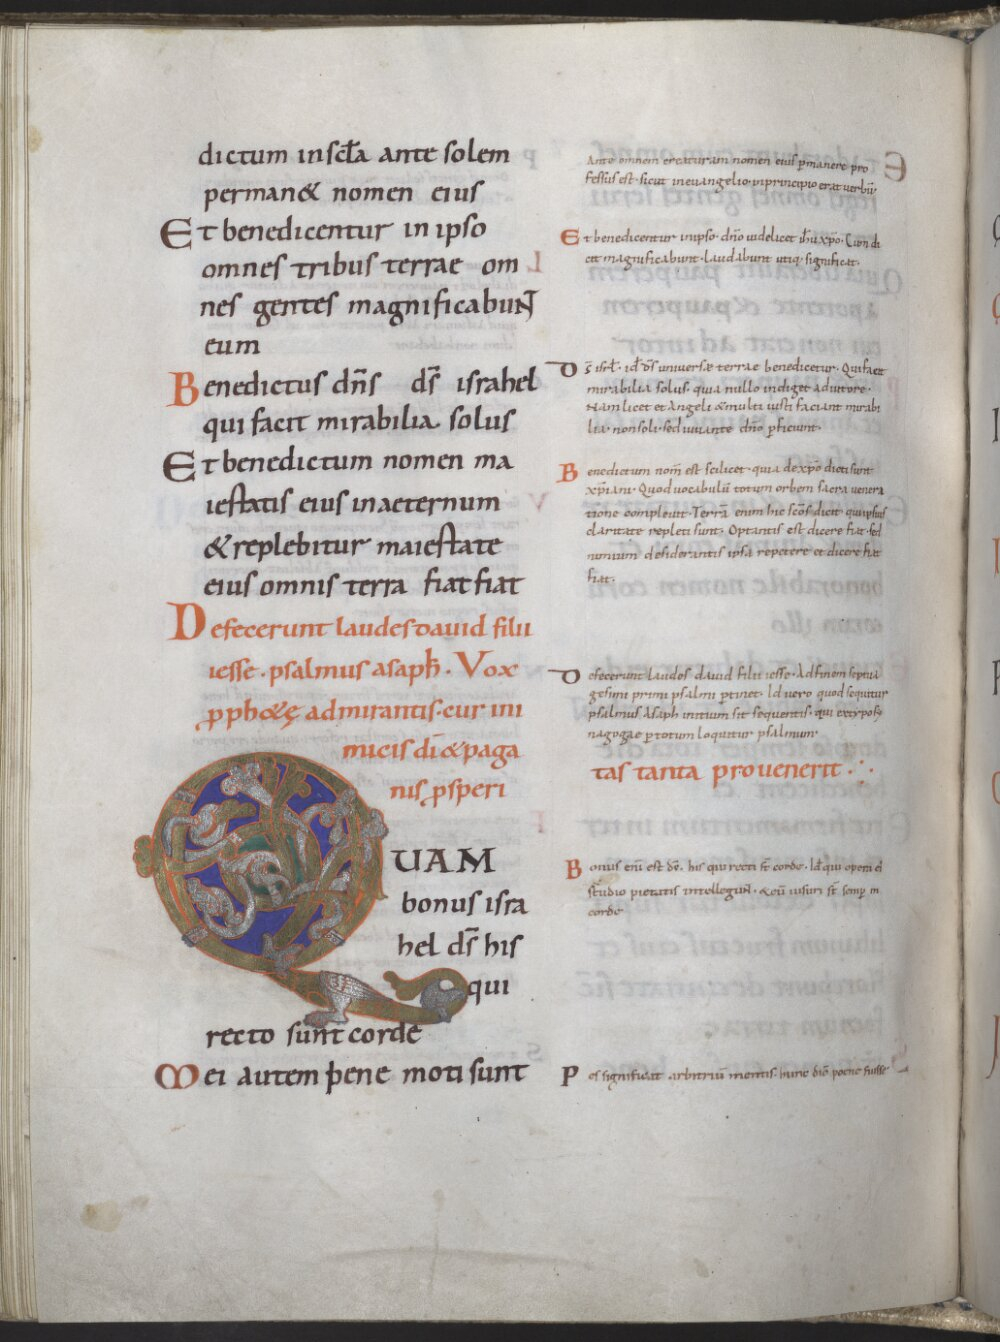 dictum in sćła ante solem
perman& nomen eius
Et benedicentur in ipso
omnes tribus terrae om
nes gentes magnificabuNT
eum
Benedictus dn̄s ds̄ israhel
qui facit mirabilia solus
Et benedictum nomen ma
iestatis eius inaeternum
& replebitur maiestate
eius omnis terra fiat fiat
Defecerunt laudes dauid filii
iesse · psalmus asaph̄ · Vox
ꝓph&ę admirantis · cur ini
micis dī & paga
nis ꝓsperi
QUAM
bonus isra
hel ds̄ his
qui
recto sunt corde
Mei autem pene moti sunt
Ante omnem creaturam nomen eius ꝑmanere pro
fessus est · sicut in euangelio · in principio erat uerbū ·
Et benedicentur in ipso · dn̄o uidelicet ih̄u xp̄o · Cum di
cit magnificabunt · laudabunt utiq; significat ·
Ds̄ isrł · id ds̄ universæ terrae benedicetur · Qui facit
mirabilia solus · quia nullo indiget adiutore ·
Nam licet et Angeli & multi iusti faciant mirabi
lia · non soli · sed iuuante dn̄o ꝑficiunt ·
Benedictum nom̄ est scilicet · quia de xp̄o dicti sunt
xp̄iani · Quod uocabulū totum orbem sacra uenera
tione compleuit · Terrā enim hic sc̄os dicit qui ipsius
claritate repleti sunt · Optantis est dicere fiat · sed
nimium desiderantis ipsa repetere et dicere fiat
fiat ·
Defecerunt laudes dauid filii iesse · Ad finem septua
gesimi primi psalmi ꝑtinet · Id uero quod sequitur
psalmus Asaph initium sit sequentis · qui ex typo sy
nagogae ꝑ totum loquitur psalmum ·
tas tanta prouenerit ∴
Bonus enī est ds̄ · his qui recti st̄ corde · Id qui opem ei
studio pietatis intellegunt · & eū uisuri st̄ semp m
corde
Pes significat arbitriū mentis · hunc dic̄ poene fuisse